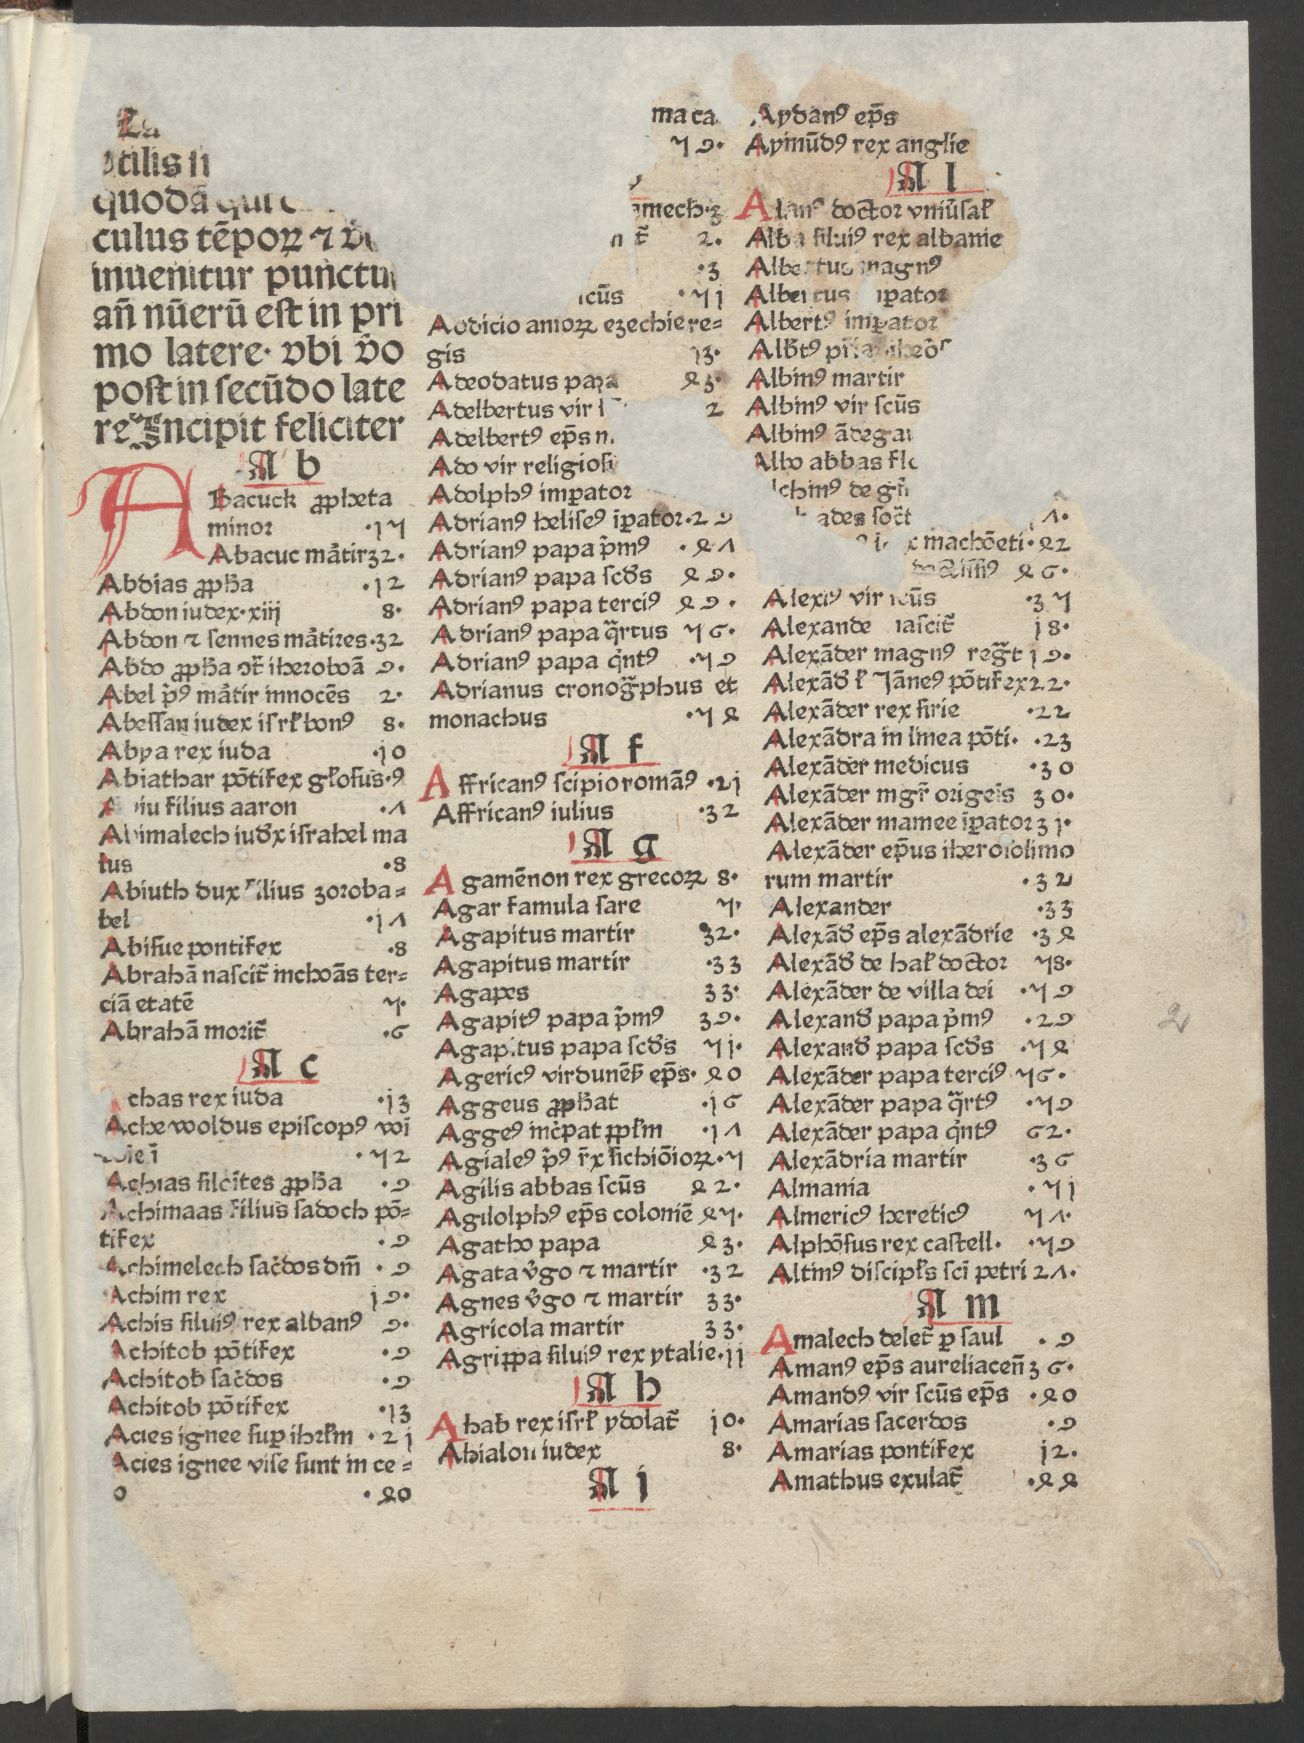 culus tēpoꝝ ⁊
inuenitur punctu
an̄ nūerū est in pri
mo latere· vbi v̄o
post in secūdo late
re Incipit feliciter
A b
Abacuck ꝓpheta
minor ·ꝫ4
Abacuc mr̄tir 32·
Abdias ꝓpħa ·12
Abdon iudex·xiij 8·
Abdon ⁊ sennes mr̄tires·32
Abdo ꝓpħa ↄt̄ iheroboā 9·
Abel p̄ꝰ mr̄tir innocēs 2·
Abessan iudex isrl̄ bonꝰ 8·
Abya rex iuda ·10
Abiathar pōtifex gl̄osus·9
filius aaron ·7
Abimalech iud̄x israhel ma
lus ·8
Abiuth dux filius zoroba=
bel ·17
Abisue pontifex ·8
Abrahā nascit̄ inchoās ter=
ciā etatē 4·
Abrahā morit̄ ·6
A c
Achas rex iuda ·13
Achewoldus episcopꝰ wī
·42
Achias silōites ꝓpħa ·9
Achimaas filius sadoch pō=
tifex ·9
Achimelech sac̄dos dm̄ ·9
Achim rex 19·
Achis siluiꝰ rex albanꝰ 9·
Achitob pōtifex ·9
Achitob sac̄dos ·9
Achitob pōtifex ·13
Acies ignee suꝑ ihrl̄m ·21
Acies ignee vise sunt in ce=
o ·50
ma ca
49·
·3
2·
·3
·41
Adicio annoꝝ ezechie re=
gis 13·
Adeodatus papa 53·
Adelbertus vir 2
Adelbertꝰ ep̄s
Ado vir religiosꝰ
Adolphꝰ imꝑator
Adrianꝰ heliseꝰ īꝑator·29
Adrianꝰ papa p̄mꝰ ·57
Adrianꝰ papa scd̄s 59·
Adrianꝰ papa terciꝰ 59·
Adrianꝰ papa q̄rtus 46·
Adrianꝰ papa q̇ntꝰ ·49
Adrianus cronogr̄phus et
monachus ·45
A f
Affricanꝰ scipio romāꝰ ·21
Affricanꝰ iulius ·32
A g
Agamēnon rex grecoꝝ 8·
Agar famula sare 4·
Agapitus martir 32·
Agapitus martir ·33
Agapes 33·
Agapitꝰ papa p̄mꝰ 39·
Agapitus papa scd̄s 41·
Agericꝰ virdunēs̄ ep̄s· 50
Aggeus ꝓpħat ·16
Aggeꝰ inc̄pat ꝓpl̄m ·17
Agialeꝰ p̄ꝰ r̄x sichiōioꝝ·4
Agilis abbas scūs 52·
Agilolphꝰ ep̄s coloniē 54·
Agatho papa 53·
Agata v̄go ⁊ martir ·32
Agnes v̄go ⁊ martir 33·
Agricola martir 33·
Agrippa siluiꝰ rex ytalie·11
A h
Ahab rex isrl̄ ydolat̄ 10·
Ahialon iudex 8·
A j
Aydanꝰ ep̄s
Aymūdꝰ rex anglie
A l
Alanꝰ doctor vniūsal̄
Alba siluiꝰ rex albanie
Albertus magnꝰ
Albertus īꝑator
Albertꝰ imꝑator
Albinꝰ martir
Albinꝰ vir scūs
Albinꝰ
Albo abbas
7·
machōeti·52
56·
Alexiꝰ vir scūs ·34
Alexande nascit̄ 18·
Alexāder magnꝰ regr̄t 19·
Alexād̄ l̄ Jāneꝰ pōtifex 22·
Alexāder rex sirie ·22
Alexādra in linea pōti· ·23
Alexāder medicus ·30
Alexāder mgr̄ origeīs 30·
Alexāder mamee īꝑator 31·
Alexāder ep̄us iherosolimo
rum martir ·32
Alexander ·33
Alexād̄ ep̄s alexādrie ·35
Alexād̄ de hal̄ doctor 48·
Alexāder de villa dei ·49
Alexand̄ papa p̄mꝰ ·29
Alexand̄ papa scd̄s ·45
Alexāder papa terciꝰ 46·
Alexāder papa q̄rtꝰ ·49
Alexāder papa q̇ntꝰ 62·
Alexādria martir ·36
Almania ·41
Almericꝰ hereticꝰ 47·
Alphōsus rex castell· ·49
Altinꝰ discipl̄s sci petri 27·
A m
Amalech delet̄ ꝑ saul ·9
Amanꝰ ep̄s aureliacen̄ 36·
Amandꝰ vir scūs ep̄s ·50
Amarias sacerdos ·9
Amarias pontifex 12·
Amathus exulat̄ ·55
2